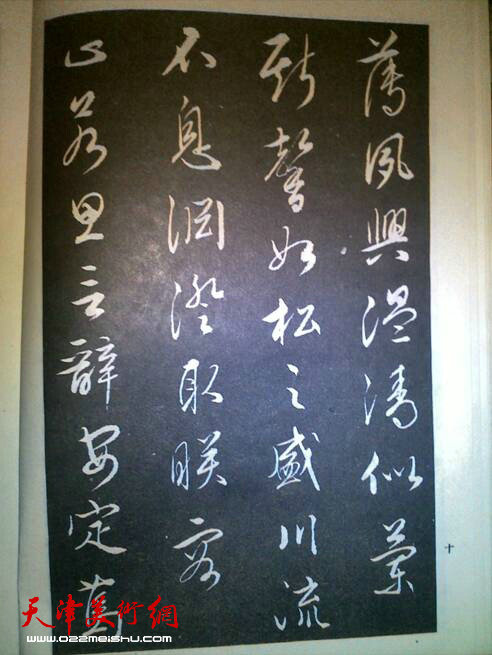 薄夙興温清似蘭
斯馨如松之盛川流
不息渊澄取暎容
止若思言辭安定篤
十
天津美術網
www.022meishu.com